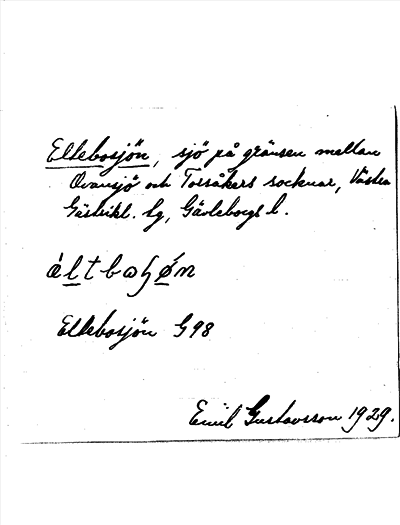 Ellebosjön, sjö på gränsen mellan
Ovansjö och Torsåkers socknar, Västra
Gästrikl. tg, Gävleborgs l.
Ellebosjön G98
Emil Gustavsson 1929.